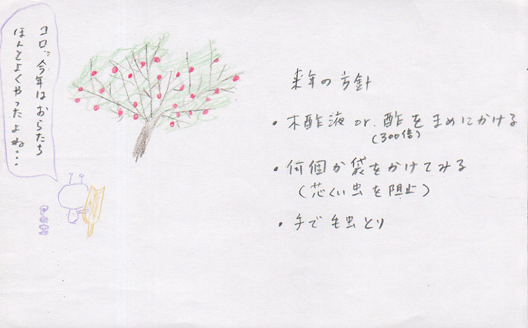 コロっ今年はおらたち
ほんとよくやったよね・・・
来年の方針
・木酢液 or. 酢をまめにかける
(300倍)
・何個か袋をかけてみる
(芯くい虫を阻止)
・手で毛虫とり